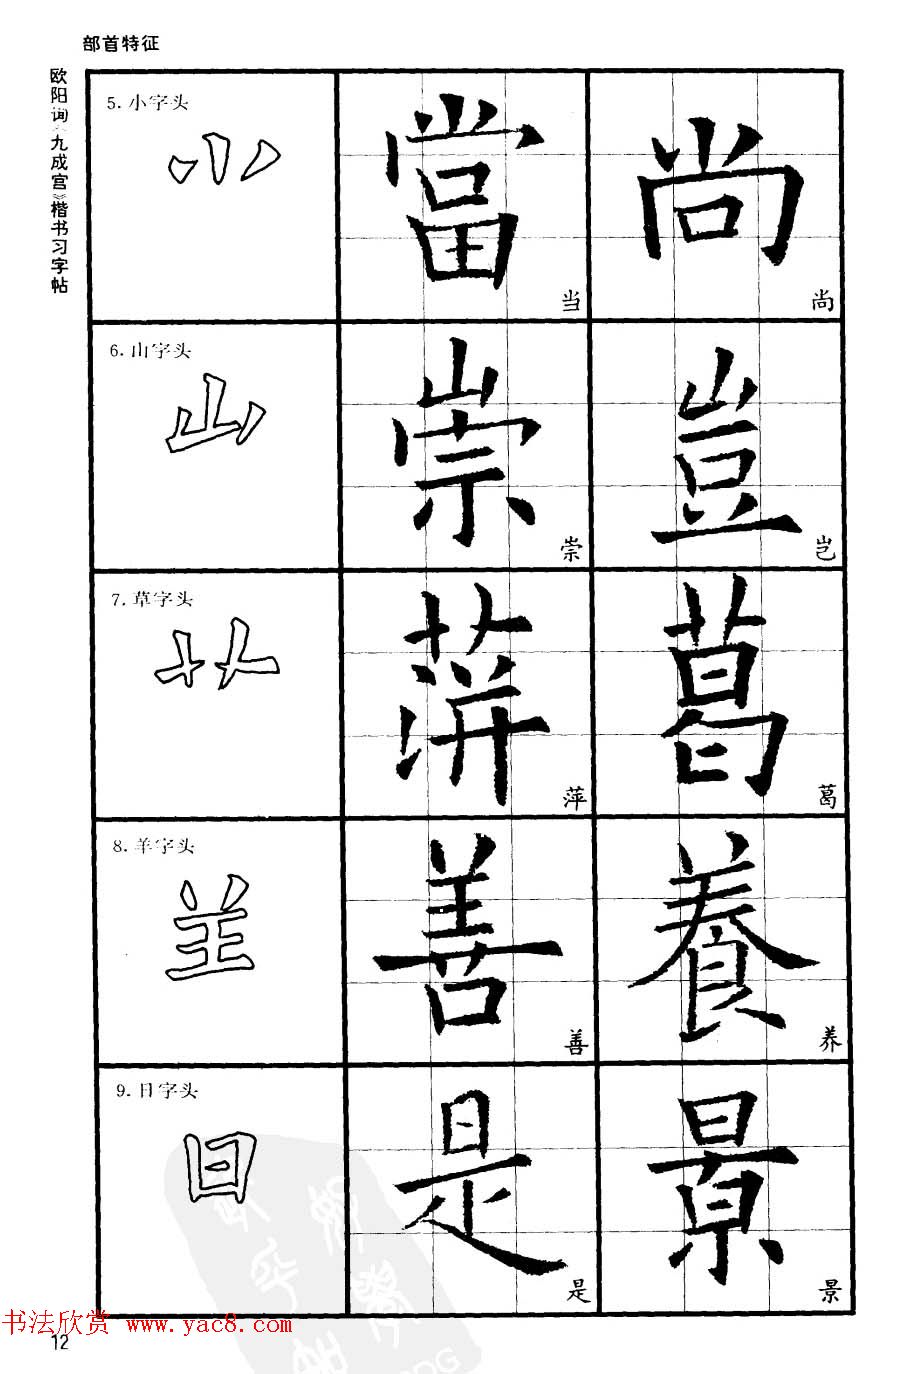 部首特征
欧阳询《九成宫》楷书习字帖
5.小字头
小
當
当
尚
尚
6.山字头
山
崇
崇
豈
岂
7.草字头
艹
蓱
萍
葛
葛
8.羊字头
𦍌
善
善
養
养
9.日字头
日
是
是
景
景
书法欣赏 www.yac8.com
12